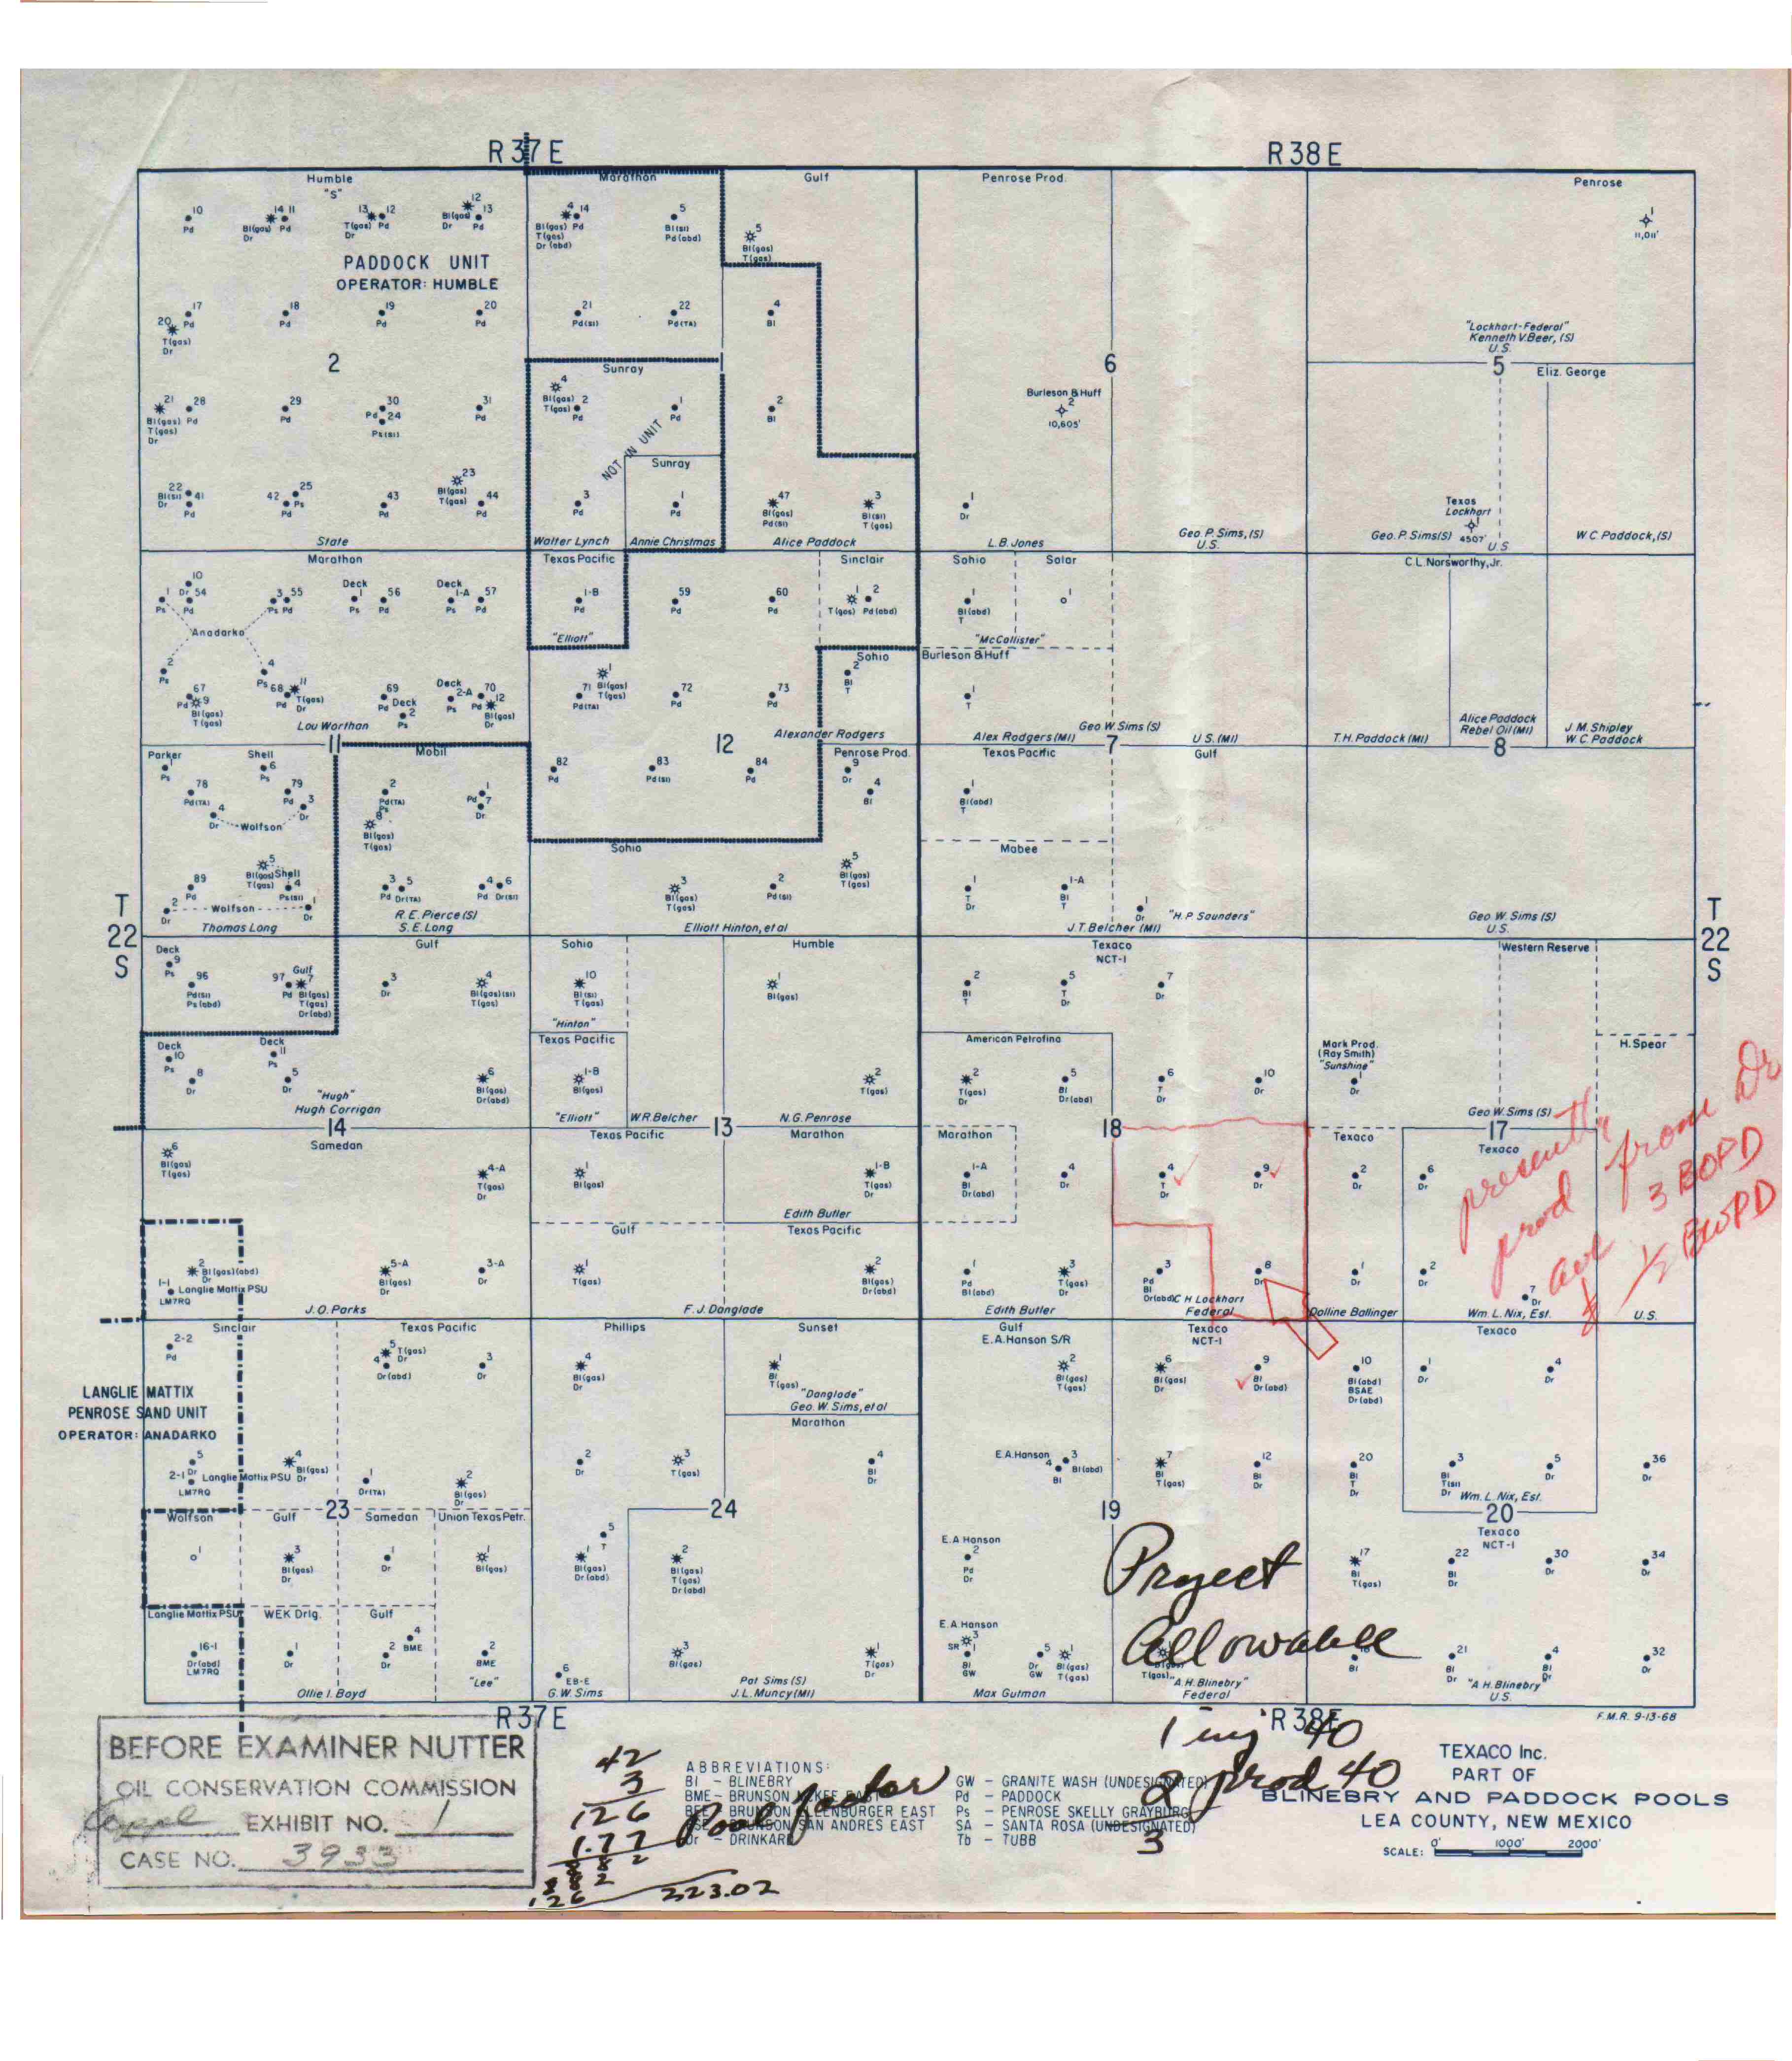 R 37 E
R 38 E
Humble
"S"
Marathon
Gulf
Penrose Prod.
Penrose
10
Pd
14 11
Bl(gas) Pd
Dr
13 12
T(gas) Pd
Dr
12
13
Bl(gas)
Dr Pd
4 14
Bl(gas) Pd
T(gas)
Dr (abd)
5
Bl(SI)
Pd(abd)
5
Bl(gas)
T(gas)
1
11,011'
PADDOCK UNIT
OPERATOR: HUMBLE
17
Pd
20
T(gas)
Dr
18
Pd
19
Pd
20
Pd
21
Pd(SI)
22
Pd(TA)
4
Bl
"Lockhart-Federal"
Kenneth V. Beer, (S)
U.S.
2
1
6
5
Sunray
Eliz. George
21 28
Bl(gas) Pd
T(gas)
Dr
29
Pd
30
Pd 24
Ps(SI)
31
Pd
4
Bl(gas) 2
T(gas)
Pd
1
Pd
2
Bl
Burleson & Huff
2
10,605'
NOT IN UNIT
Sunray
22
Bl(SI) 41
Dr
Pd
25
42 Ps
Pd
43
Pd
23
Bl(gas)
T(gas)
44
Pd
3
Pd
1
Pd
47
Bl(gas)
Pd(SI)
3
Bl(SI)
T(gas)
1
Dr
Texas
Lockhart
1
4507'
State
Walter Lynch
Annie Christmas
Alice Paddock
L.B. Jones
Geo. P. Sims, (S)
U.S.
Geo. P. Sims(S)
U.S.
W.C. Paddock, (S)
Marathon
Texas Pacific
Sinclair
Sohio
Solar
C.L. Norsworthy, Jr.
10
1 Dr 54
Ps Pd
3 55
Ps Pd
Deck
1 56
Ps Pd
Deck
1-A 57
Ps Pd
1-B
Pd
59
Pd
60
Pd
1 2
T(gas) Pd(abd)
1
Bl(abd)
T
1
Anadarko
"Elliott"
"McCallister"
Sohio
Burleson & Huff
2
Ps
67
Pd 9
Bl(gas)
T(gas)
4
Ps 68 11
Pd T(gas)
Dr
69
Pd Deck
2
Ps
Deck
2-A 70
Ps Pd 12
Bl(gas)
Dr
1
71 Bl(gas)
T(gas)
Pd(TA)
72
Pd
73
Pd
2
Bl
T
1
T
Lou Worthan
Alexander Rodgers
Alex Rodgers (MI)
Geo W. Sims (S)
U.S. (MI)
T.H. Paddock (MI)
Alice Paddock
Rebel Oil (MI)
J.M. Shipley
W.C. Paddock
11
12
7
8
Parker
Shell
Mobil
Penrose Prod.
Texas Pacific
Gulf
1
Ps
6
Ps
78
Pd(TA)
79
Pd 3
Dr
4
Dr
Wolfson
2
Pd(TA)
Ps
8
Bl(gas)
T(gas)
1
Pd 7
Dr
82
Pd
83
Pd(SI)
84
Pd
9
Dr
4
Bl
1
Bl(abd)
T
Sohio
Mabee
89
Pd
2
Dr
5
Bl(gas) Shell
T(gas) 4
Ps(SI)
1
Dr
Wolfson
3 5
Pd Dr(TA)
4 6
Pd Dr(SI)
3
Bl(gas)
T(gas)
2
Pd(SI)
5
Bl(gas)
T(gas)
1
T
Dr
1-A
Bl
T
1
Dr
"H.P. Saunders"
Thomas Long
R.E. Pierce (S)
S.E. Long
Elliott Hinton, et al
J.T. Belcher (MI)
Geo. W. Sims (S)
U.S.
T
22
S
T
22
S
Deck
9
Ps
Gulf
Sohio
Humble
Texaco
NCT-1
Western Reserve
96
Pd(SI)
Ps(abd)
Gulf
97 7
Pd Bl(gas)
T(gas)
Dr(abd)
3
Dr
4
Bl(gas)(SI)
T(gas)
10
Bl(SI)
T(gas)
1
Bl(gas)
2
Bl
T
5
T
Dr
7
Dr
"Hinton"
Texas Pacific
American Petrofina
Mark Prod.
(Ray Smith)
"Sunshine"
1
Dr
H. Spear
Deck
10
Ps
Deck
11
Ps
8
Dr
5
Dr
6
Bl(gas)
Dr(abd)
1-B
Bl(gas)
2
T(gas)
2
T(gas)
Dr
5
Bl
Dr(abd)
6
T
Dr
10
Dr
"Hugh"
Hugh Corrigan
"Elliott"
W.R. Belcher
N.G. Penrose
Geo W. Sims (S)
14
13
18
17
Samedan
Texas Pacific
Marathon
Marathon
Texaco
Texaco
6
Bl(gas)
T(gas)
4-A
T(gas)
Dr
1
Bl(gas)
1-B
T(gas)
Dr
1-A
Bl
Dr(abd)
4
Dr
4
T
Dr
9
Dr
2
Dr
6
Dr
presently
prod from Dr
ave 3 BOPD
& 1/2 BWPD
Edith Butler
Gulf
Texas Pacific
2
Bl(gas)(abd)
Dr
1-1
Langlie Mattix PSU
LM7RQ
5-A
Bl(gas)
3-A
Dr
1
T(gas)
2
Bl(gas)
Dr(abd)
1
Pd
Bl(abd)
3
T(gas)
Dr
3
Pd
Bl
Dr(abd)
8
Dr
1
Dr
2
Dr
7
Dr
J.O. Parks
F.J. Danglade
Edith Butler
C H Lockhart
Federal
Dolline Ballinger
Wm. L. Nix, Est.
U.S.
Sinclair
Texas Pacific
Phillips
Sunset
Gulf
E.A. Hanson S/R
Texaco
NCT-1
Texaco
2-2
Pd
5
T(gas)
4 Dr
Dr(abd)
3
Dr
4
Bl(gas)
Dr
1
Bl
T(gas)
"Danglade"
Geo. W. Sims, et al
2
Bl(gas)
T(gas)
6
Bl(gas)
Dr
9
Bl
Dr(abd)
10
Bl(abd)
BSAE
Dr(abd)
1
Dr
4
Dr
LANGLIE MATTIX
PENROSE SAND UNIT
OPERATOR: ANADARKO
Marathon
5
2-1 Dr
Langlie Mattix PSU
LM7RQ
4
Bl(gas)
Dr
1
Dr(TA)
2
Bl(gas)
Dr
2
Dr
3
T(gas)
4
Bl
Dr
E.A. Hanson
3
4 Bl(abd)
Bl
7
Bl
T(gas)
12
Bl
Dr
20
Bl
T
Dr
3
Bl
T(SI)
Dr
5
Dr
36
Dr
Wm. L. Nix, Est.
23
24
19
20
Wolfson
Gulf
Samedan
Union Texas Petr.
Texaco
NCT-1
1
3
Bl(gas)
Dr
1
Dr
1
Bl(gas)
5
T
1
Bl(gas)
Dr(abd)
2
Bl(gas)
T(gas)
Dr(abd)
E.A. Hanson
2
Pd
Dr
17
Bl
T(gas)
22
Bl
Dr
30
Dr
34
Dr
Project
Allowable
Langlie Mattix PSU
WEK Drlg.
Gulf
16-1
Dr(abd)
LM7RQ
1
Dr
2
Dr
4
BME
2
BME
"Lee"
6
EB-E
3
Bl(gas)
1
T(gas)
Dr
E.A. Hanson
3
SR 1
Bl
GW
5
Dr
GW
1
Bl(gas)
T(gas)
T(gas)
Bl
21
Bl
Dr
4
Bl
Dr
32
Dr
Ollie I. Boyd
G.W. Sims
Pat Sims (S)
J.L. Muncy (MI)
Max Gutman
"A.H. Blinebry"
Federal
"A.H. Blinebry"
U.S.
R 37 E
R 38 E
F.M.R. 9-13-68
BEFORE EXAMINER NUTTER
OIL CONSERVATION COMMISSION
EXHIBIT NO. 1
CASE NO. 3933
42
3
126
1.77
882
882
126
223.02
Pool factor
1 inj 40
2 prod 40
3
ABBREVIATIONS:
Bl – BLINEBRY
BME – BRUNSON McKEE EAST
BEE – BRUNSON ELLENBURGER EAST
BSAE – BRUNSON SAN ANDRES EAST
Dr – DRINKARD
GW – GRANITE WASH (UNDESIGNATED)
Pd – PADDOCK
Ps – PENROSE SKELLY GRAYBURG
SA – SANTA ROSA (UNDESIGNATED)
Tb – TUBB
TEXACO Inc.
PART OF
BLINEBRY AND PADDOCK POOLS
LEA COUNTY, NEW MEXICO
SCALE: 0' 1000' 2000'